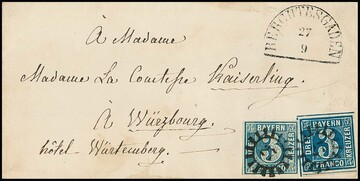 À Madame
BERCHTESGADEN
27
9
Madame La Comtesse Kaiserling.
À Würzbourg
hôtel - Würtemberg.
BAYERN
3
BAYERN
DREI
KREUZER
3
FRANCO